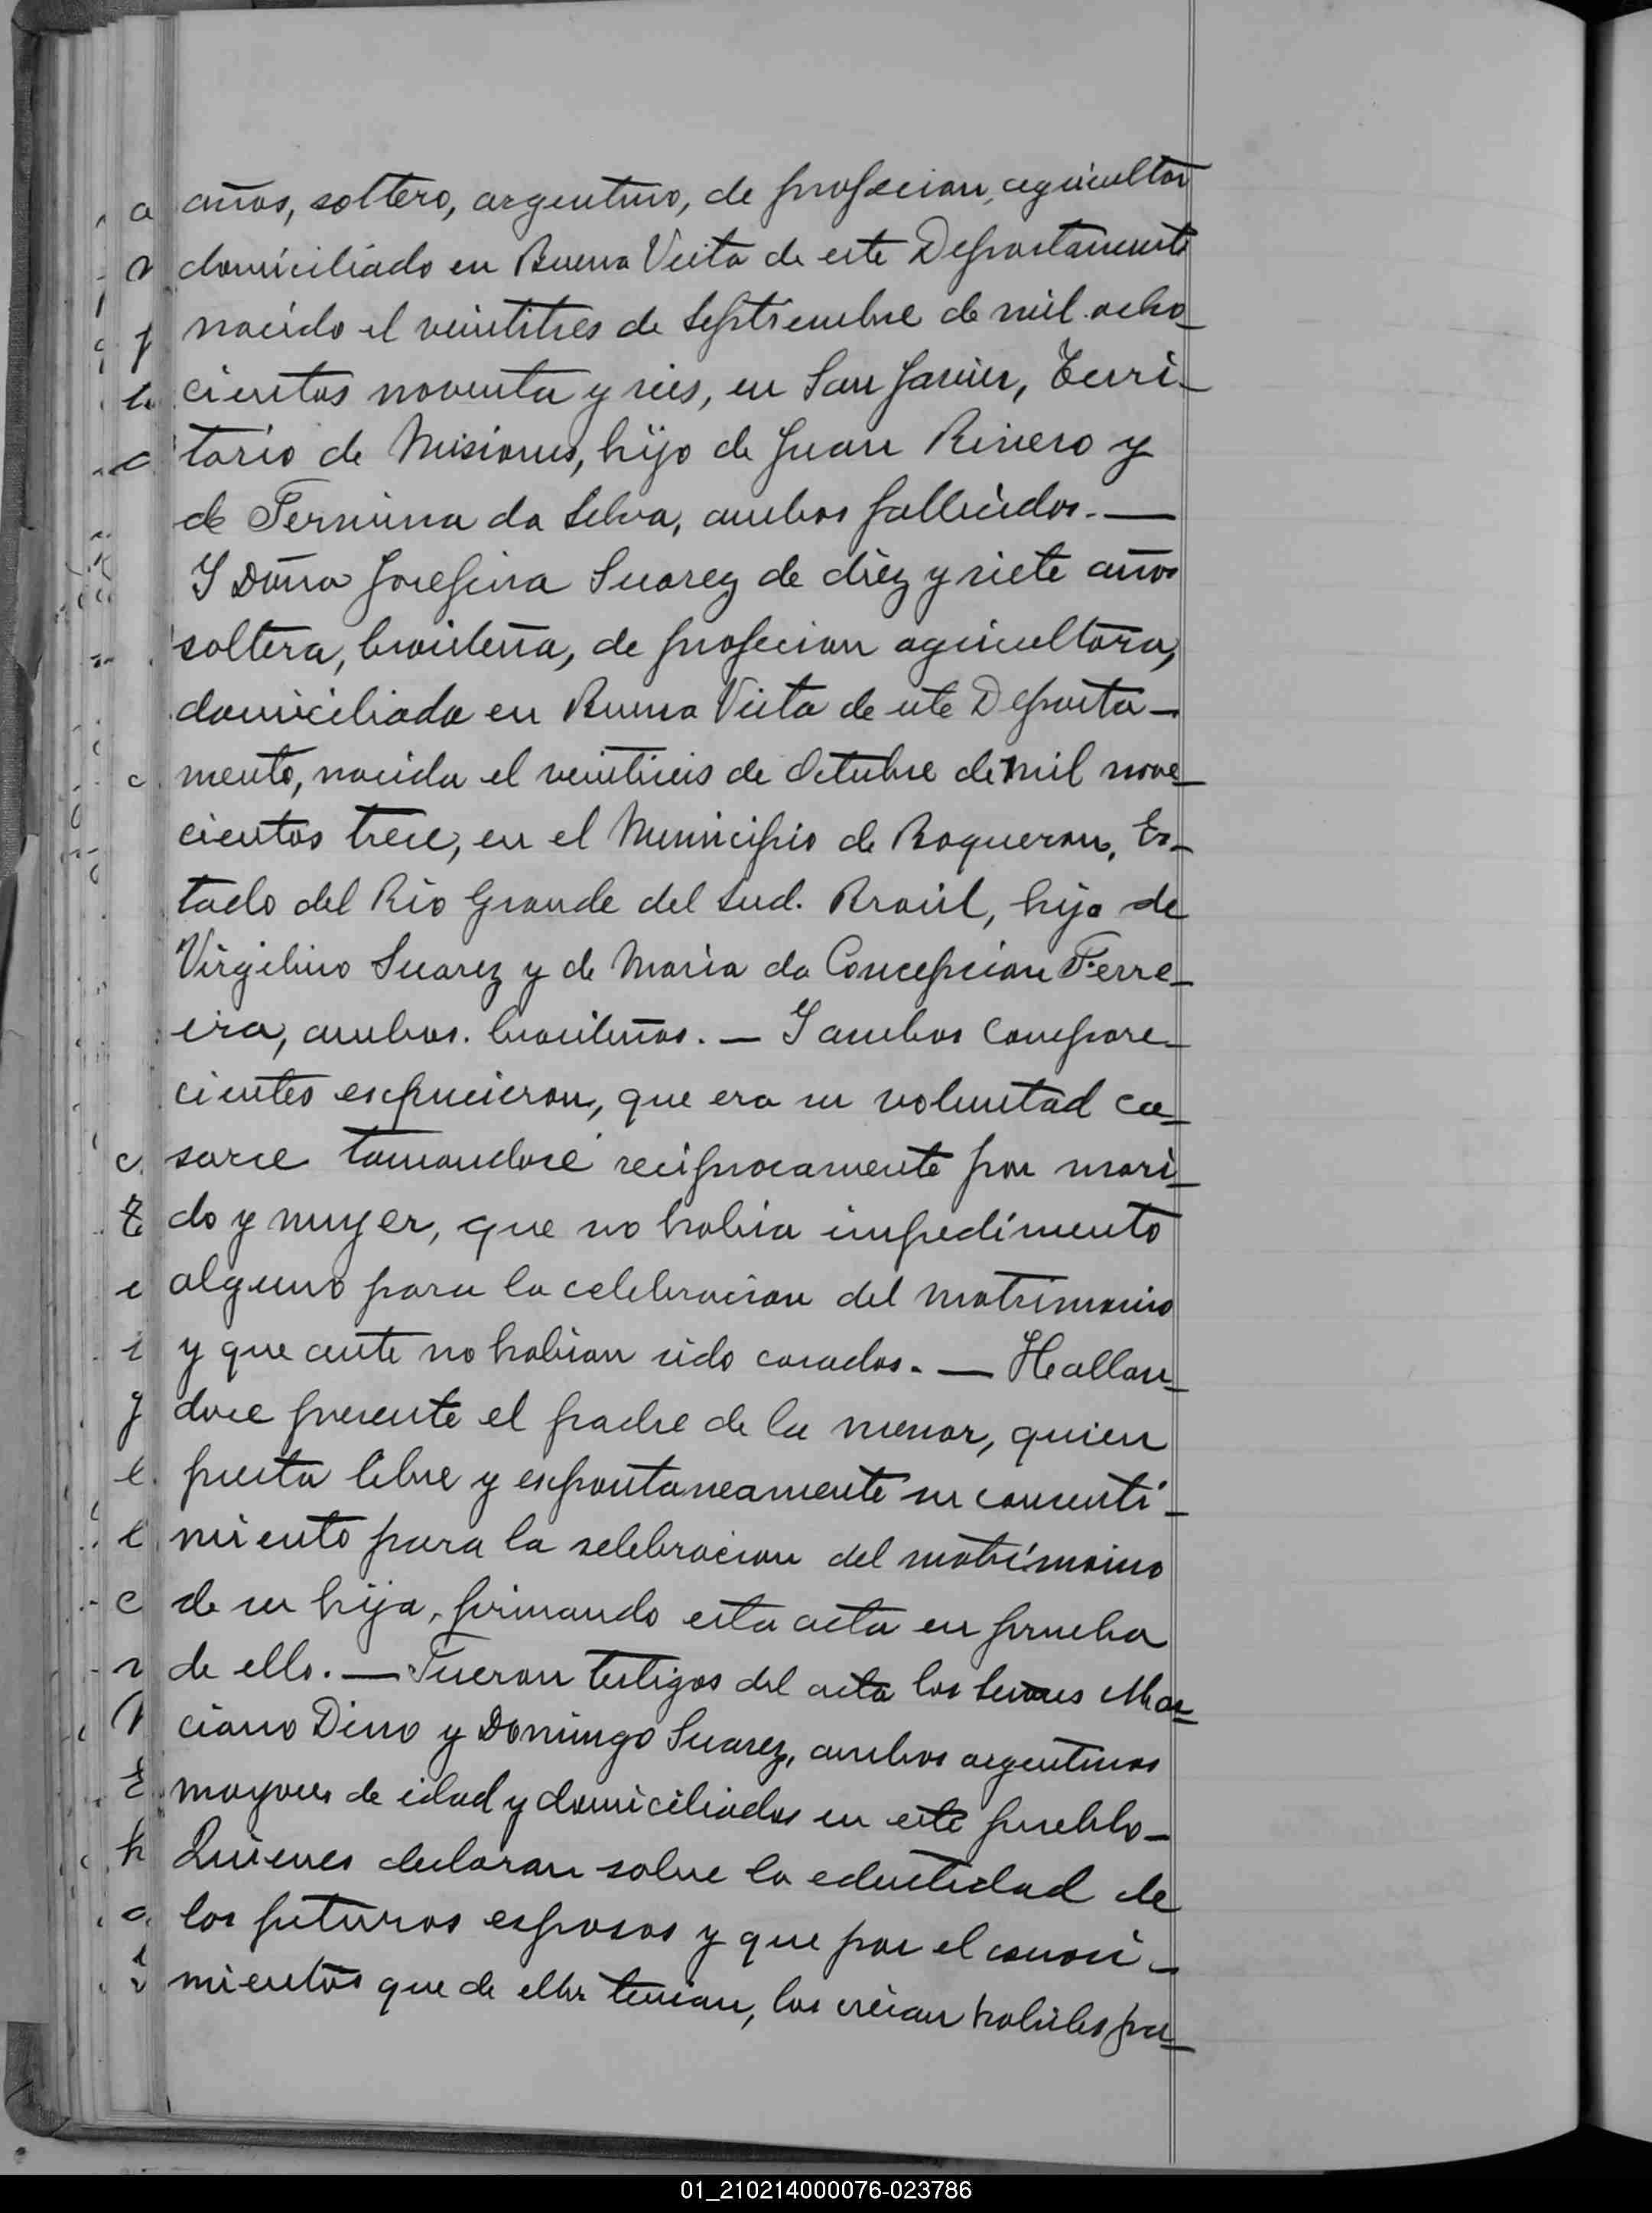 años, soltero, argentino, de profecion, agricultor
domiciliado en Buena Vista de este Departamento
nacido el veintitres de Septiembre de mil ocho_
cientos noventa y seis, en San Javier, Terri_
torio de Misiones, hijo de Juan Rivero y
de Fermina da Selva, ambos fallecidos.—
Y Doña Josefina Suarez de diez y siete años
soltera, brasileña, de profecion agricultora,
domiciliada en Buena Vista de este Departa_
mento, nacida el veintiseis de Octubre de mil nove_
cientos trece, en el Municipio de Boqueron, Es_
tado del Rio Grande del Sud. Brasil, hija de
Virgilino Suarez y de Maria da Concepcion Ferre_
ira, ambos. brasileños. — Y ambos Compare_
cientes expucieron, que era su voluntad ca_
sarce tomandose reciprocamente por mari_
do y mujer, que no habia impedimento
alguno para la celebracion del matrimonio
y que ante no habian sido casados. — Hallan_
doce presente el padre de la menor, quien
presta libre y espontaneamente su consenti_
miento para la selebracion del matrimonio
de su hija, firmando esta acta en prueba
de ello. — Fueron testigos del acta los Señores Mar_
ciano Dino y Domingo Suarez, ambos argentinos
mayores de edad y domiciliados en este pueblo_
Quienes declaran sobre la edentidad de
los futuros esposos y que por el conoci_
mientos que de ellos tenian, los creian habiles pa_
01_210214000076-023786